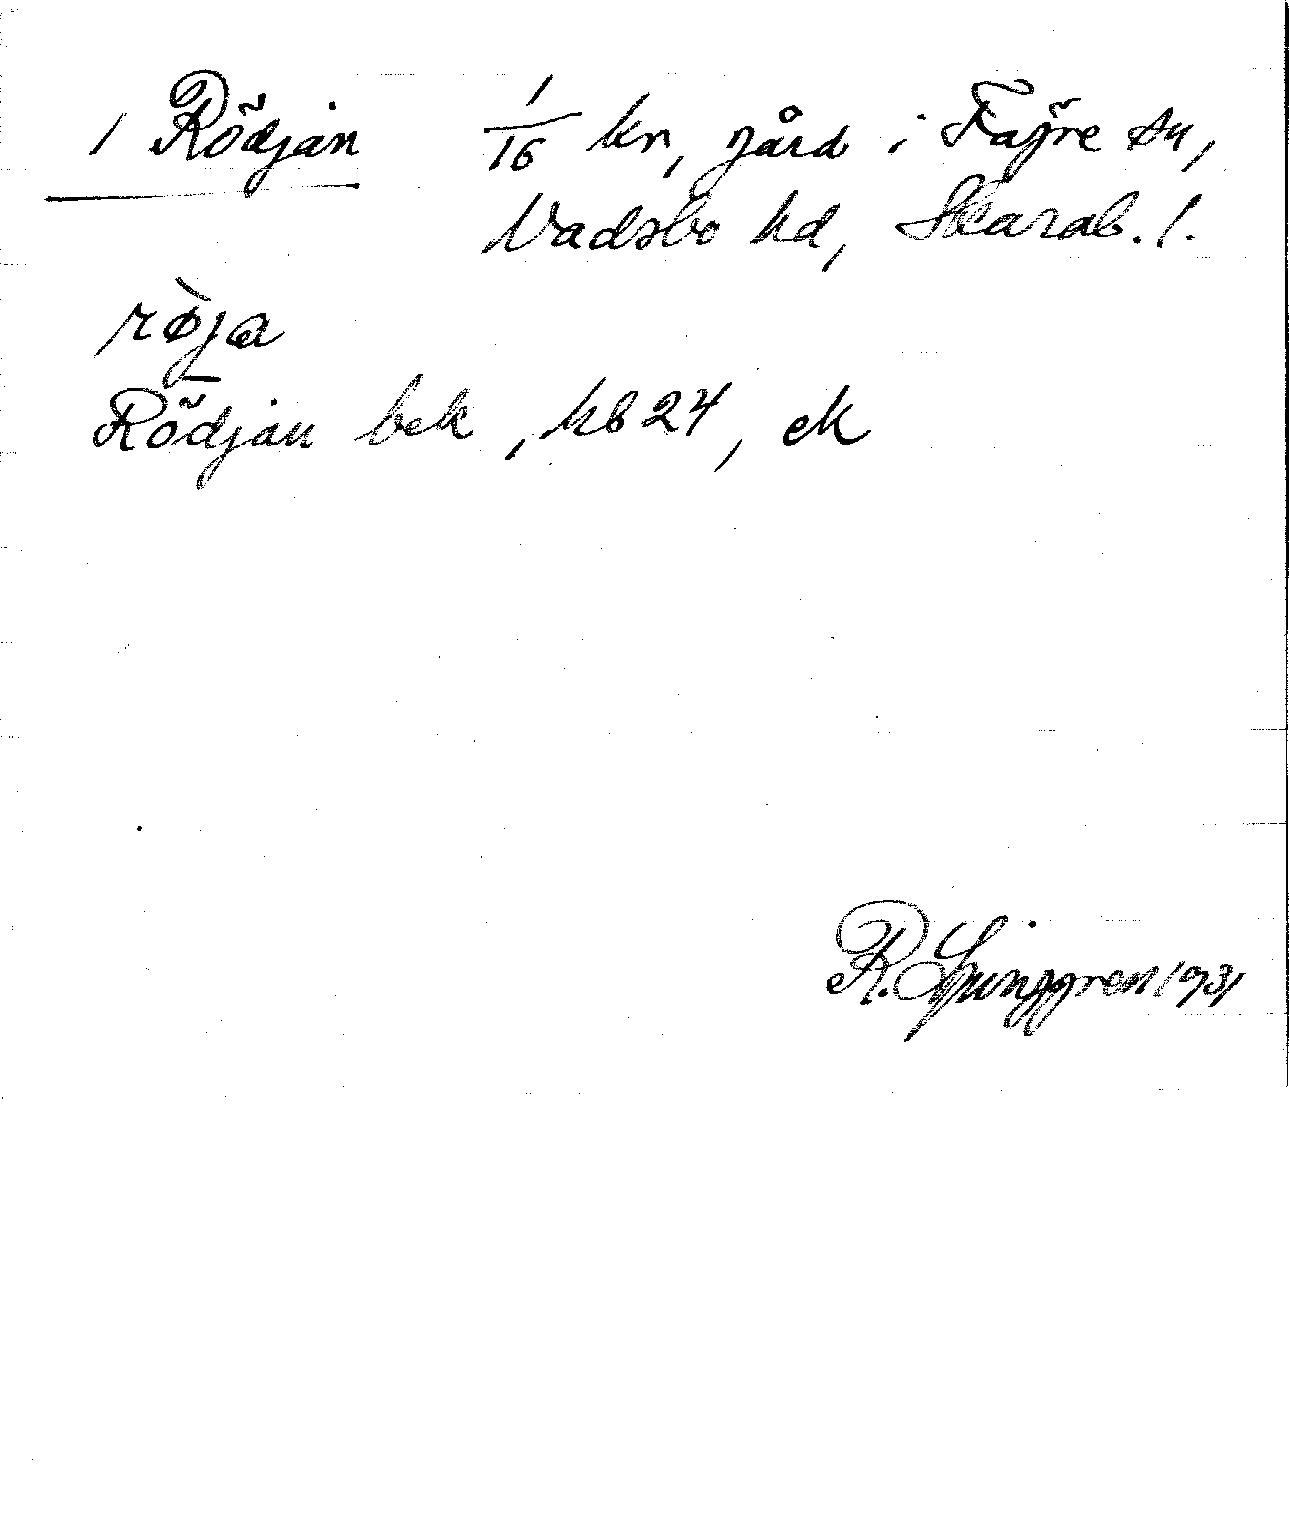 1 Rödjan 1/16 kn, gård i Fägre sn,
Vadsbo hd, Skarab. l.
rø̀ja
Rödjan bek, kb 24, ek
R. Ljunggren 1931